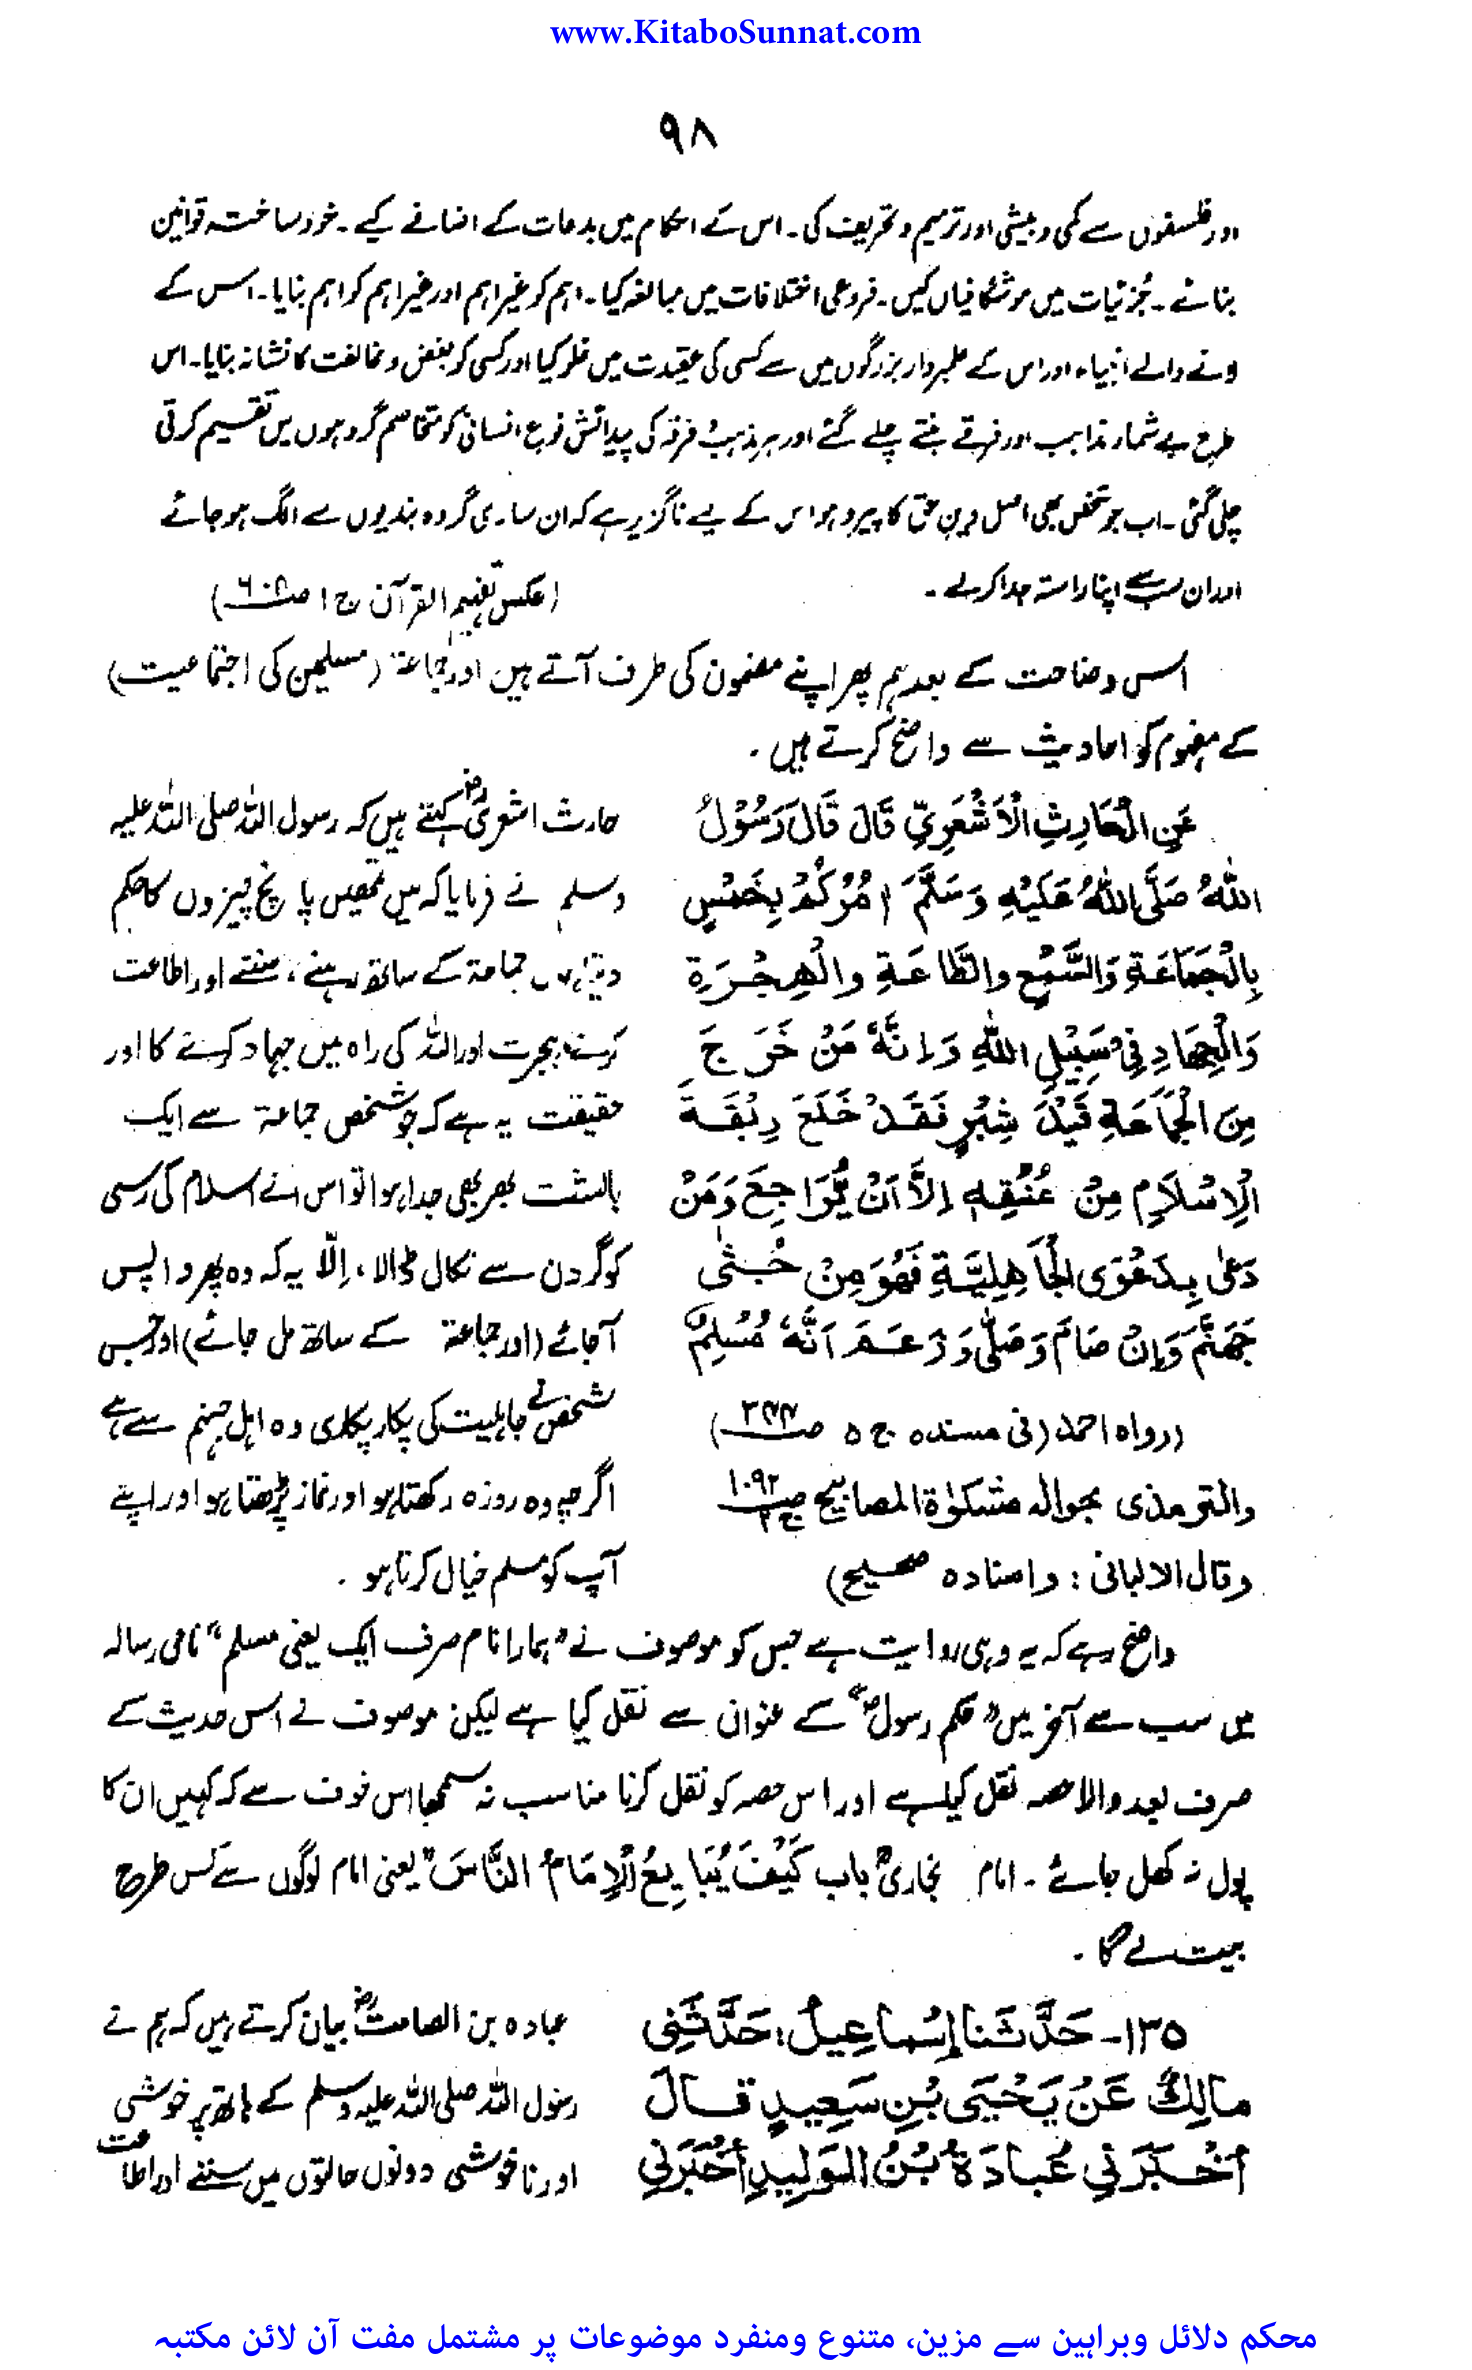 www.KitaboSunnat.com
۹۸
اور فلسفوں سے کمی و بیشی اور ترمیم و تحریف کی۔ اس کے احکام میں بدعات کے اضافے کیے۔ خود ساختہ قوانین
بنائے۔ جزئیات میں موشگافیاں کیں۔ فروعی اختلافات میں مبالغہ کیا۔ اہم کو غیر اہم اور غیر اہم کو اہم بنایا۔ اس کے
ونے والے انبیاء اور اس کے علمبردار بزرگوں میں سے کسی کی عقیدت میں غلو کیا اور کسی کو بغض و مخالفت کا نشانہ بنایا۔ اس
طرح بے شمار مذاہب اور فرقے بنتے چلے گئے اور ہر مذہب و فرقہ کی پیدائش نوع انسانی کو متخاصم گروہوں میں تقسیم کرتی
چلی گئی۔ اب جو شخص بھی اصل دین حق کا پیرو ہو اس کے لیے ناگزیر ہے کہ ان ساری گروہ بندیوں سے الگ ہو جائے
اور ان سب سے اپنا راستہ جدا کر لے۔ (عکس تفہیم القرآن ج ۱ ص ۶۰۸)
اس وضاحت کے بعد ہم پھر اپنے مضمون کی طرف آتے ہیں اور جماعۃ (مسلمین کی اجتماعیت)
کے مفہوم کو احادیث سے واضح کرتے ہیں۔
عَنِ الْحَارِثِ الْاَشْعَرِيِّ قَالَ قَالَ رَسُوْلُ
اللّٰهِ صَلَّى اللّٰهُ عَلَيْهِ وَسَلَّمَ اٰمُرُكُمْ بِخَمْسٍ
بِالْجَمَاعَةِ وَالسَّمْعِ وَالطَّاعَةِ وَالْهِجْرَةِ
وَالْجِهَادِ فِيْ سَبِيْلِ اللّٰهِ وَاِنَّهٗ مَنْ خَرَجَ
مِنَ الْجَمَاعَةِ قَيْدَ شِبْرٍ فَقَدْ خَلَعَ رِبْقَةَ
الْاِسْلَامِ مِنْ عُنُقِهٖ اِلَّا اَنْ يُّرَاجِعَ وَمَنْ
دَعٰى بِدَعْوَى الْجَاهِلِيَّةِ فَهُوَ مِنْ جُثٰى
جَهَنَّمَ وَاِنْ صَامَ وَصَلّٰى وَزَعَمَ اَنَّهٗ مُسْلِمٌ
(رواہ احمد (فی مسندہ ج ۵ ص ۳۴۴)
والترمذی بحوالہ مشکوٰۃ المصابیح ص ۱۰۹۲ ج ۲
وقال الالبانی : واسنادہ صحیح)
حارث اشعریؓ کہتے ہیں کہ رسول اللہ صلی اللہ علیہ
وسلم نے فرمایا کہ میں تمھیں پانچ چیزوں کا حکم
دیتا ہوں جماعۃ کے ساتھ رہنے، سننے اور اطاعت
کرنے، ہجرت اور اللہ کی راہ میں جہاد کرنے کا اور
حقیقت یہ ہے کہ جو شخص جماعۃ سے ایک
بالشت بھر بھی جدا ہوا تو اس نے اسلام کی رسی
کو گردن سے نکال ڈالا، اِلّا یہ کہ وہ پھر واپس
آجائے (اور جماعۃ کے ساتھ مل جائے) اور جس
شخص نے جاہلیت کی پکار پکاری وہ اہل جہنم سے ہے
اگرچہ وہ روزہ رکھتا ہو اور نماز پڑھتا ہو اور اپنے
آپ کو مسلم خیال کرتا ہو۔
واضح رہے کہ یہ وہی روایت ہے جس کو موصوف نے "ہمارا نام صرف ایک یعنی مسلم" نامی رسالہ
میں سب سے آخر میں "حکم رسولؐ" کے عنوان سے نقل کیا ہے لیکن موصوف نے اس حدیث کے
صرف بعد والا حصہ نقل کیا ہے اور اس حصہ کو نقل کرنا مناسب نہ سمجھا اس خوف سے کہ کہیں ان کا
پول نہ کھل جائے۔ امام بخاریؒ باب كَيْفَ يُبَايِعُ الْاِمَامُ النَّاسَ" یعنی امام لوگوں سے کس طرح
بیعت لے گا۔
۱۳۵- حَدَّثَنا إِسْماعِيلُ، حَدَّثَنِي
مالِكٌ عَنْ يَحْيَى بْنِ سَعِيدٍ قالَ
أَخْبَرَنِي عُبادَةُ بْنُ الوَلِيدِ أَخْبَرَنِي
عبادہ بن الصامتؓ بیان کرتے ہیں کہ ہم نے
رسول اللہ صلی اللہ علیہ وسلم کے ہاتھ پر خوشی
اور ناخوشی دونوں حالتوں میں سننے اور اطاعت
محکم دلائل وبراہین سے مزین، متنوع ومنفرد موضوعات پر مشتمل مفت آن لائن مکتبہ